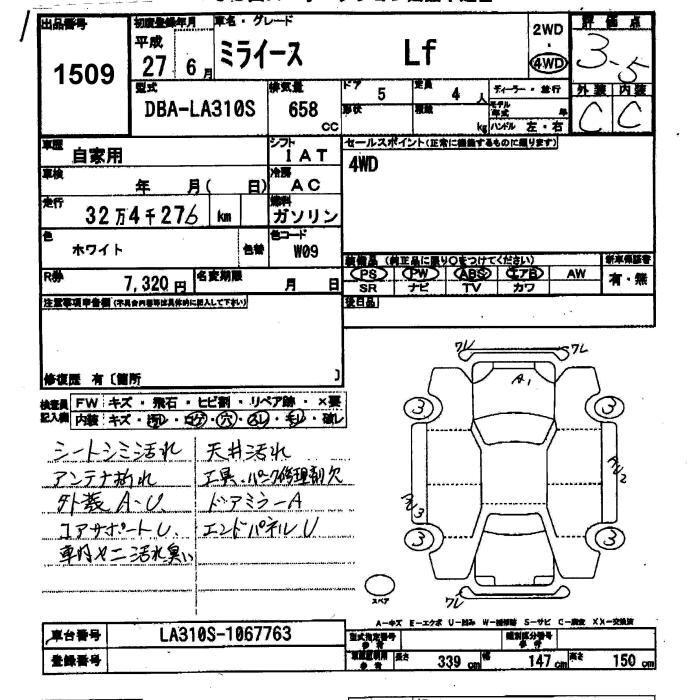 出品番号
1509
初度登録年月
平成
27年6月
車名・グレード
ミライース Lf
2WD
・
4WD
評価点
3-5
外装 内装
C C
型式
DBA-LA310S
排気量
658
CC
ドア
5
定員
4人
形状
積載
kg
ディーラー・並行
モデル年式 年
ハンドル 左・右
車歴
自家用
シフト
IAT
車検
年 月( 日)
冷房
AC
走行
32万4千276 km
燃料
ガソリン
色
ホワイト
色替
色コード
W09
R券
7,320円
名変期限
月 日
セールスポイント(正常に機能するものに限ります)
4WD
装備品 (純正品に限り○をつけてください)
PS PW ABS エアB AW
SR ナビ TV カワ
新車保証書
有・無
後日品
注意事項申告欄(不具合内容等は具体的に記入して下さい)
修復歴 有〔箇所 〕
検査員記入欄
FW キズ・飛石・ヒビ割・リペア跡・×要
内装 キズ・汚レ・コゲ・穴・スレ・モレ・破レ
シートシミ汚れ 天井汚れ
アンテナ折れ 工具、パンク修理剤欠
外装A・U. ドアミラーA
コアサポートU. エンドパネルU
車内ヤニ汚れ臭い
ワレ ワレ
A1
3 3
3 3
ワレ
スペア
A-キズ E-エクボ U-凹み W-補修跡 S-サビ C-腐食 XX-交換済
車台番号
LA310S-1067763
登録番号
型式指定番号
参考
類別区分番号
参考
長さ 339 cm
幅 147 cm
高さ 150 cm